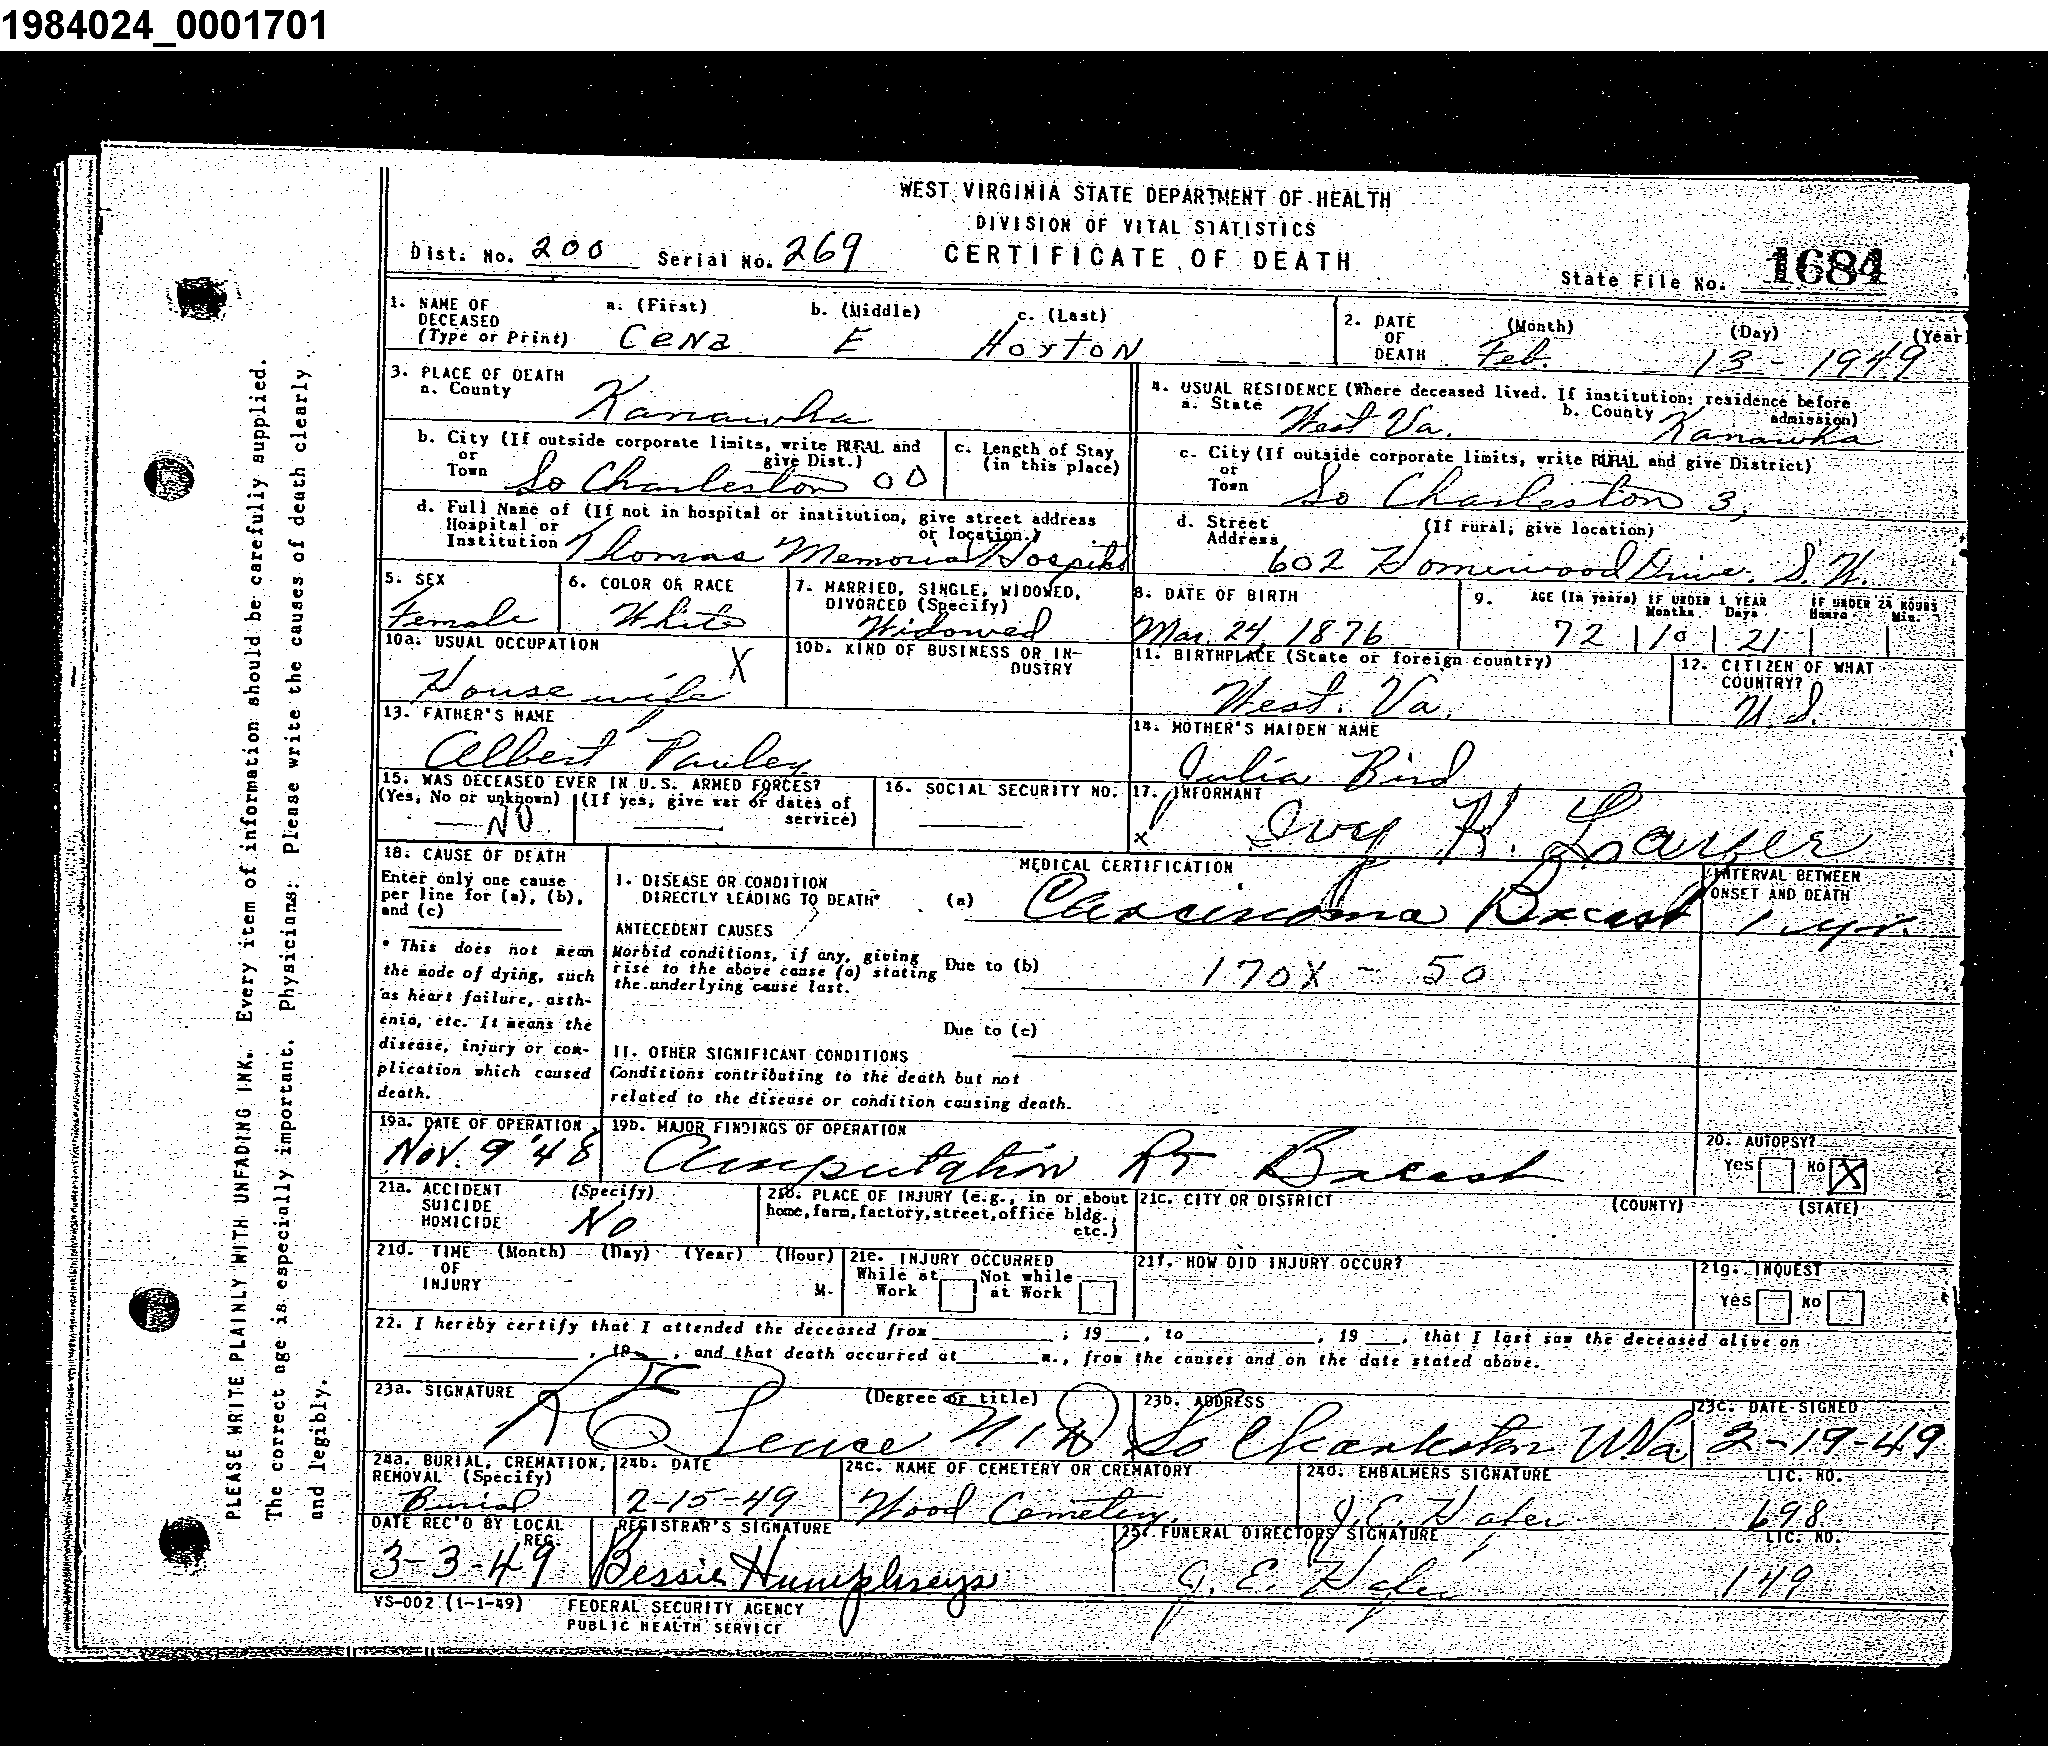 1984024_0001701
WEST VIRGINIA STATE DEPARTMENT OF HEALTH
DIVISION OF VITAL STATISTICS
Dist. No. 200 Serial No. 269 CERTIFICATE OF DEATH State File No. 1684
1. NAME OF DECEASED (Type or Print) a. (First) b. (Middle) c. (Last)
Cena E Horton
2. DATE OF DEATH (Month) (Day) (Year)
Feb. 13 - 1949
3. PLACE OF DEATH
a. County Kanawha
4. USUAL RESIDENCE (Where deceased lived. If institution: residence before admission)
a. State West Va. b. County Kanawha
b. City (If outside corporate limits, write RURAL and give Dist.)
or Town So Charleston 00
c. Length of Stay (in this place)
c. City (If outside corporate limits, write RURAL and give District)
or Town So Charleston 3,
d. Full Name of (If not in hospital or institution, give street address or location.)
Hospital or Institution Thomas Memorial Hospital
d. Street Address (If rural, give location)
602 Homewood Drive. S.W.
5. SEX
Female
6. COLOR OR RACE
White
7. MARRIED, SINGLE, WIDOWED, DIVORCED (Specify)
Widowed
8. DATE OF BIRTH
Mar. 24, 1876
9. AGE (In years) IF UNDER 1 YEAR Months Days IF UNDER 24 HOURS Hours Min.
72 10 21
10a. USUAL OCCUPATION
House wife X
10b. KIND OF BUSINESS OR INDUSTRY
11. BIRTHPLACE (State or foreign country)
West. Va.
12. CITIZEN OF WHAT COUNTRY?
U.S.
13. FATHER'S NAME
Albert Pauley
14. MOTHER'S MAIDEN NAME
Julia Bird
15. WAS DECEASED EVER IN U.S. ARMED FORCES?
(Yes, No or unknown) (If yes, give war or dates of service)
NO
16. SOCIAL SECURITY NO.
17. INFORMANT
x Ivy H.
18. CAUSE OF DEATH
Enter only one cause per line for (a), (b), and (c)
* This does not mean the mode of dying, such as heart failure, asthenia, etc. It means the disease, injury or complication which caused death.
MEDICAL CERTIFICATION
INTERVAL BETWEEN ONSET AND DEATH
I. DISEASE OR CONDITION DIRECTLY LEADING TO DEATH* (a) Carcinoma Breast 1 yr.
ANTECEDENT CAUSES
Morbid conditions, if any, giving rise to the above cause (a) stating the underlying cause last.
Due to (b) 170X - 50
Due to (c)
II. OTHER SIGNIFICANT CONDITIONS
Conditions contributing to the death but not related to the disease or condition causing death.
19a. DATE OF OPERATION
Nov. 9 '48
19b. MAJOR FINDINGS OF OPERATION
Amputation Rt Breast
20. AUTOPSY?
Yes No X
21a. ACCIDENT SUICIDE HOMICIDE (Specify)
No
21b. PLACE OF INJURY (e.g., in or about home, farm, factory, street, office bldg., etc.)
21c. CITY OR DISTRICT (COUNTY) (STATE)
21d. TIME OF INJURY (Month) (Day) (Year) (Hour) M.
21e. INJURY OCCURRED
While at Work Not while at Work
21f. HOW DID INJURY OCCUR?
21g. INQUEST
Yes No
22. I hereby certify that I attended the deceased from , 19 , to , 19 , that I last saw the deceased alive on
, 19 , and that death occurred at m., from the causes and on the date stated above.
23a. SIGNATURE (Degree or title)
MD
23b. ADDRESS
So Charleston WVa
23c. DATE SIGNED
2-19-49
24a. BURIAL, CREMATION, REMOVAL (Specify)
Burial
24b. DATE
2-15-49
24c. NAME OF CEMETERY OR CREMATORY
Wood Cemetery.
24d. EMBALMERS SIGNATURE LIC. NO.
J.E. Hafer 698
DATE REC'D BY LOCAL REG.
3-3-49
REGISTRAR'S SIGNATURE
Bessie Humphreys
25. FUNERAL DIRECTORS SIGNATURE LIC. NO.
J. E. Hafer 149
VS-002 (1-1-49) FEDERAL SECURITY AGENCY
PUBLIC HEALTH SERVICE
PLEASE WRITE PLAINLY WITH UNFADING INK. Every item of information should be carefully supplied.
The correct age is especially important. Physicians: Please write the causes of death clearly
and legibly.